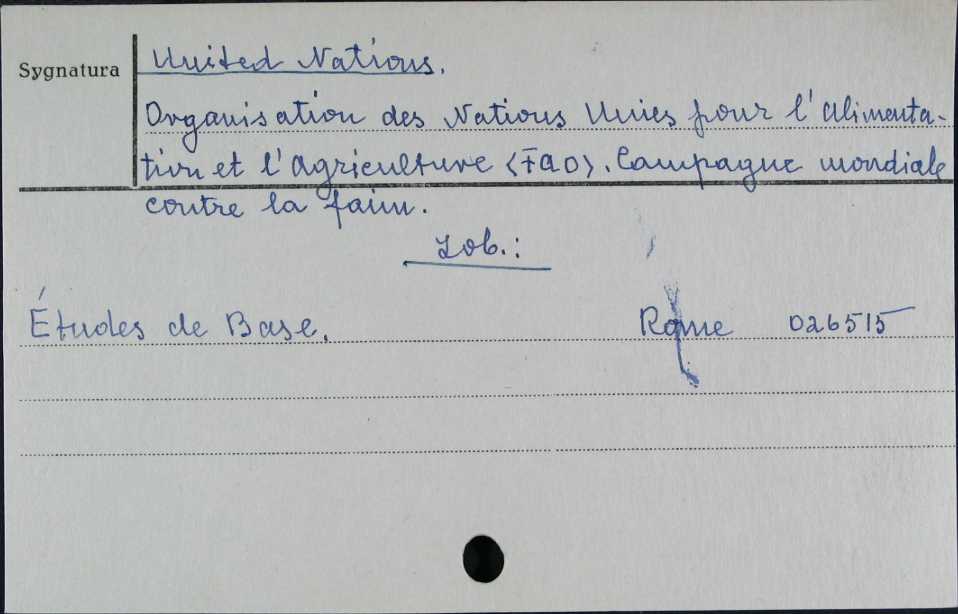 Sygnatura
United Nations.
Organisation des Nations Unies pour l'Alimenta-
tion et l'Agriculture <FAO>. Campagne mondiale
contre la faim.
Zob.:
Études de Base. Rome 026515